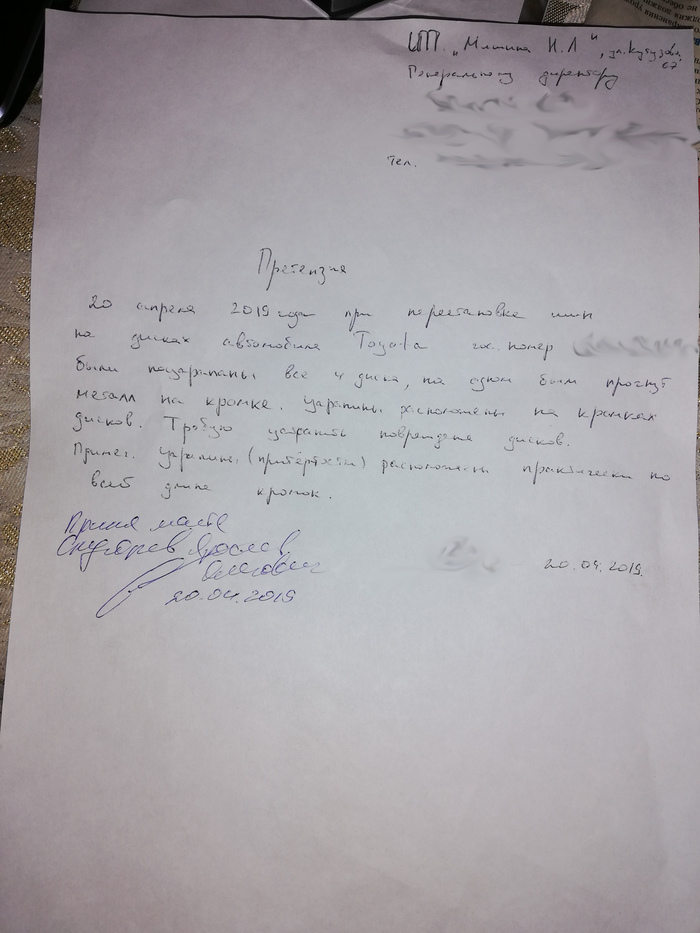 ИП. "Мишина Н.Л", ул. Кутузова,
67
Генеральному директору
Тел.
Претензия
20 апреля 2019 года при перестановке шин
на дисках автомобиля Toyota гос. номер
были поцарапаны все 4 диска, на одном был прогнут
металл на кромке. Царапины расположены на кромках
дисков. Требую устранить повреждения дисков.
Примеч. Царапины (притёртости) расположены практически по
всей длине кромок.
Принял мастер
Ярослав
Олегович
20.04.2019
20.04.2019.